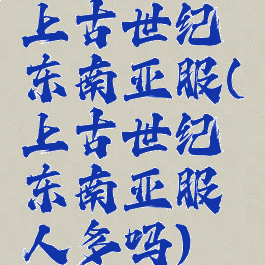 上古世纪
东南亚服(
上古世纪
东南亚服
人多吗)